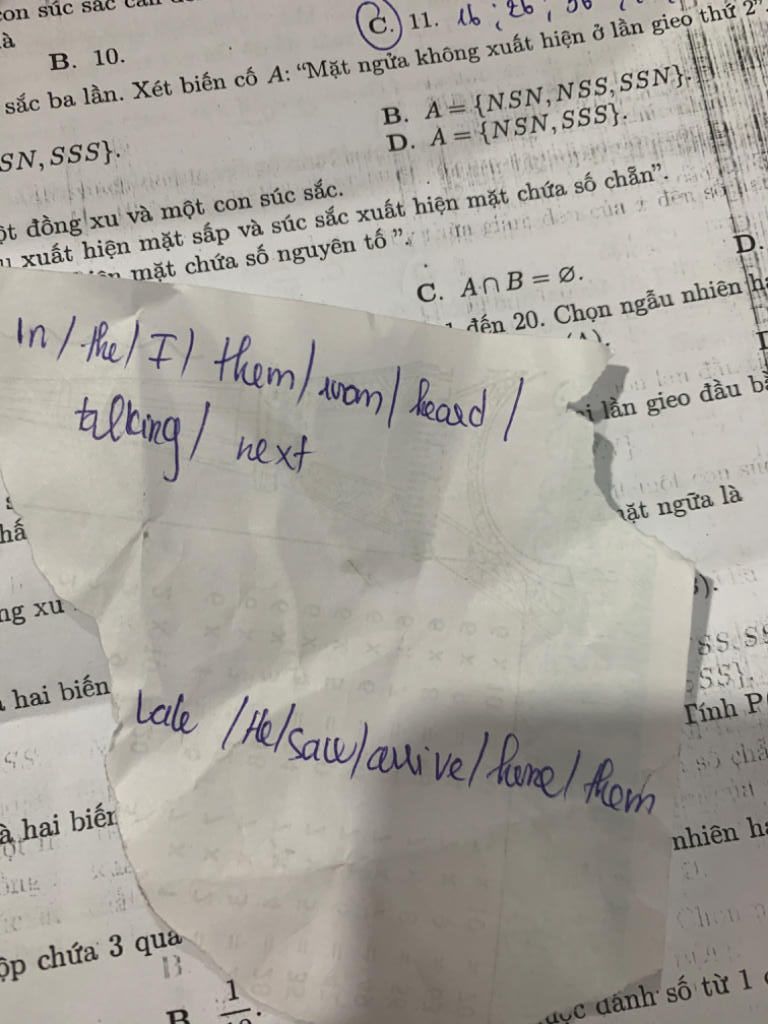 con súc sắc cân đ
là
B. 10.
C. 11. 16; 26; 36;
sắc ba lần. Xét biến cố A: “Mặt ngửa không xuất hiện ở lần gieo thứ 2”.
B. A = {NSN, NSS, SSN}.
SN, SSS}.
D. A = {NSN, SSS}.
ột đồng xu và một con súc sắc.
u xuất hiện mặt sấp và súc sắc xuất hiện mặt chứa số chẵn”.
ện mặt chứa số nguyên tố”.
C. A ∩ B = ∅.
D.
đến 20. Chọn ngẫu nhiên h
In / the / I / them / room / heard /
talking / next
i lần gieo đầu b
mặt ngửa là
hấ
ng xu
SS, SS
SS}.
hai biến
Tính P(
Late / He / saw / arrive / home / them
à hai biến
nhiên h
ộp chứa 3 quả
B. 1
được đánh số từ 1